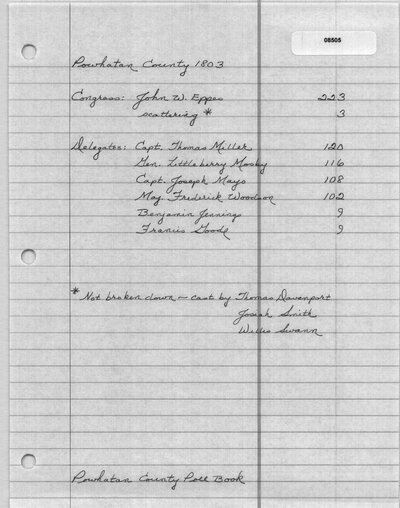 08505
Powhatan County 1803
Congress: John W. Eppes 223
scattering * 3
Delegates: Capt. Thomas Miller 120
Gen. Littleberry Mosby 116
Capt. Joseph Mayo 108
Maj. Frederick Woodson 102
Benjamin Jennings 9
Francis Goode 9
* Not broken down – cast by Thomas Davenport
Josiah Smith
Willis Swann
Powhatan County Poll Book